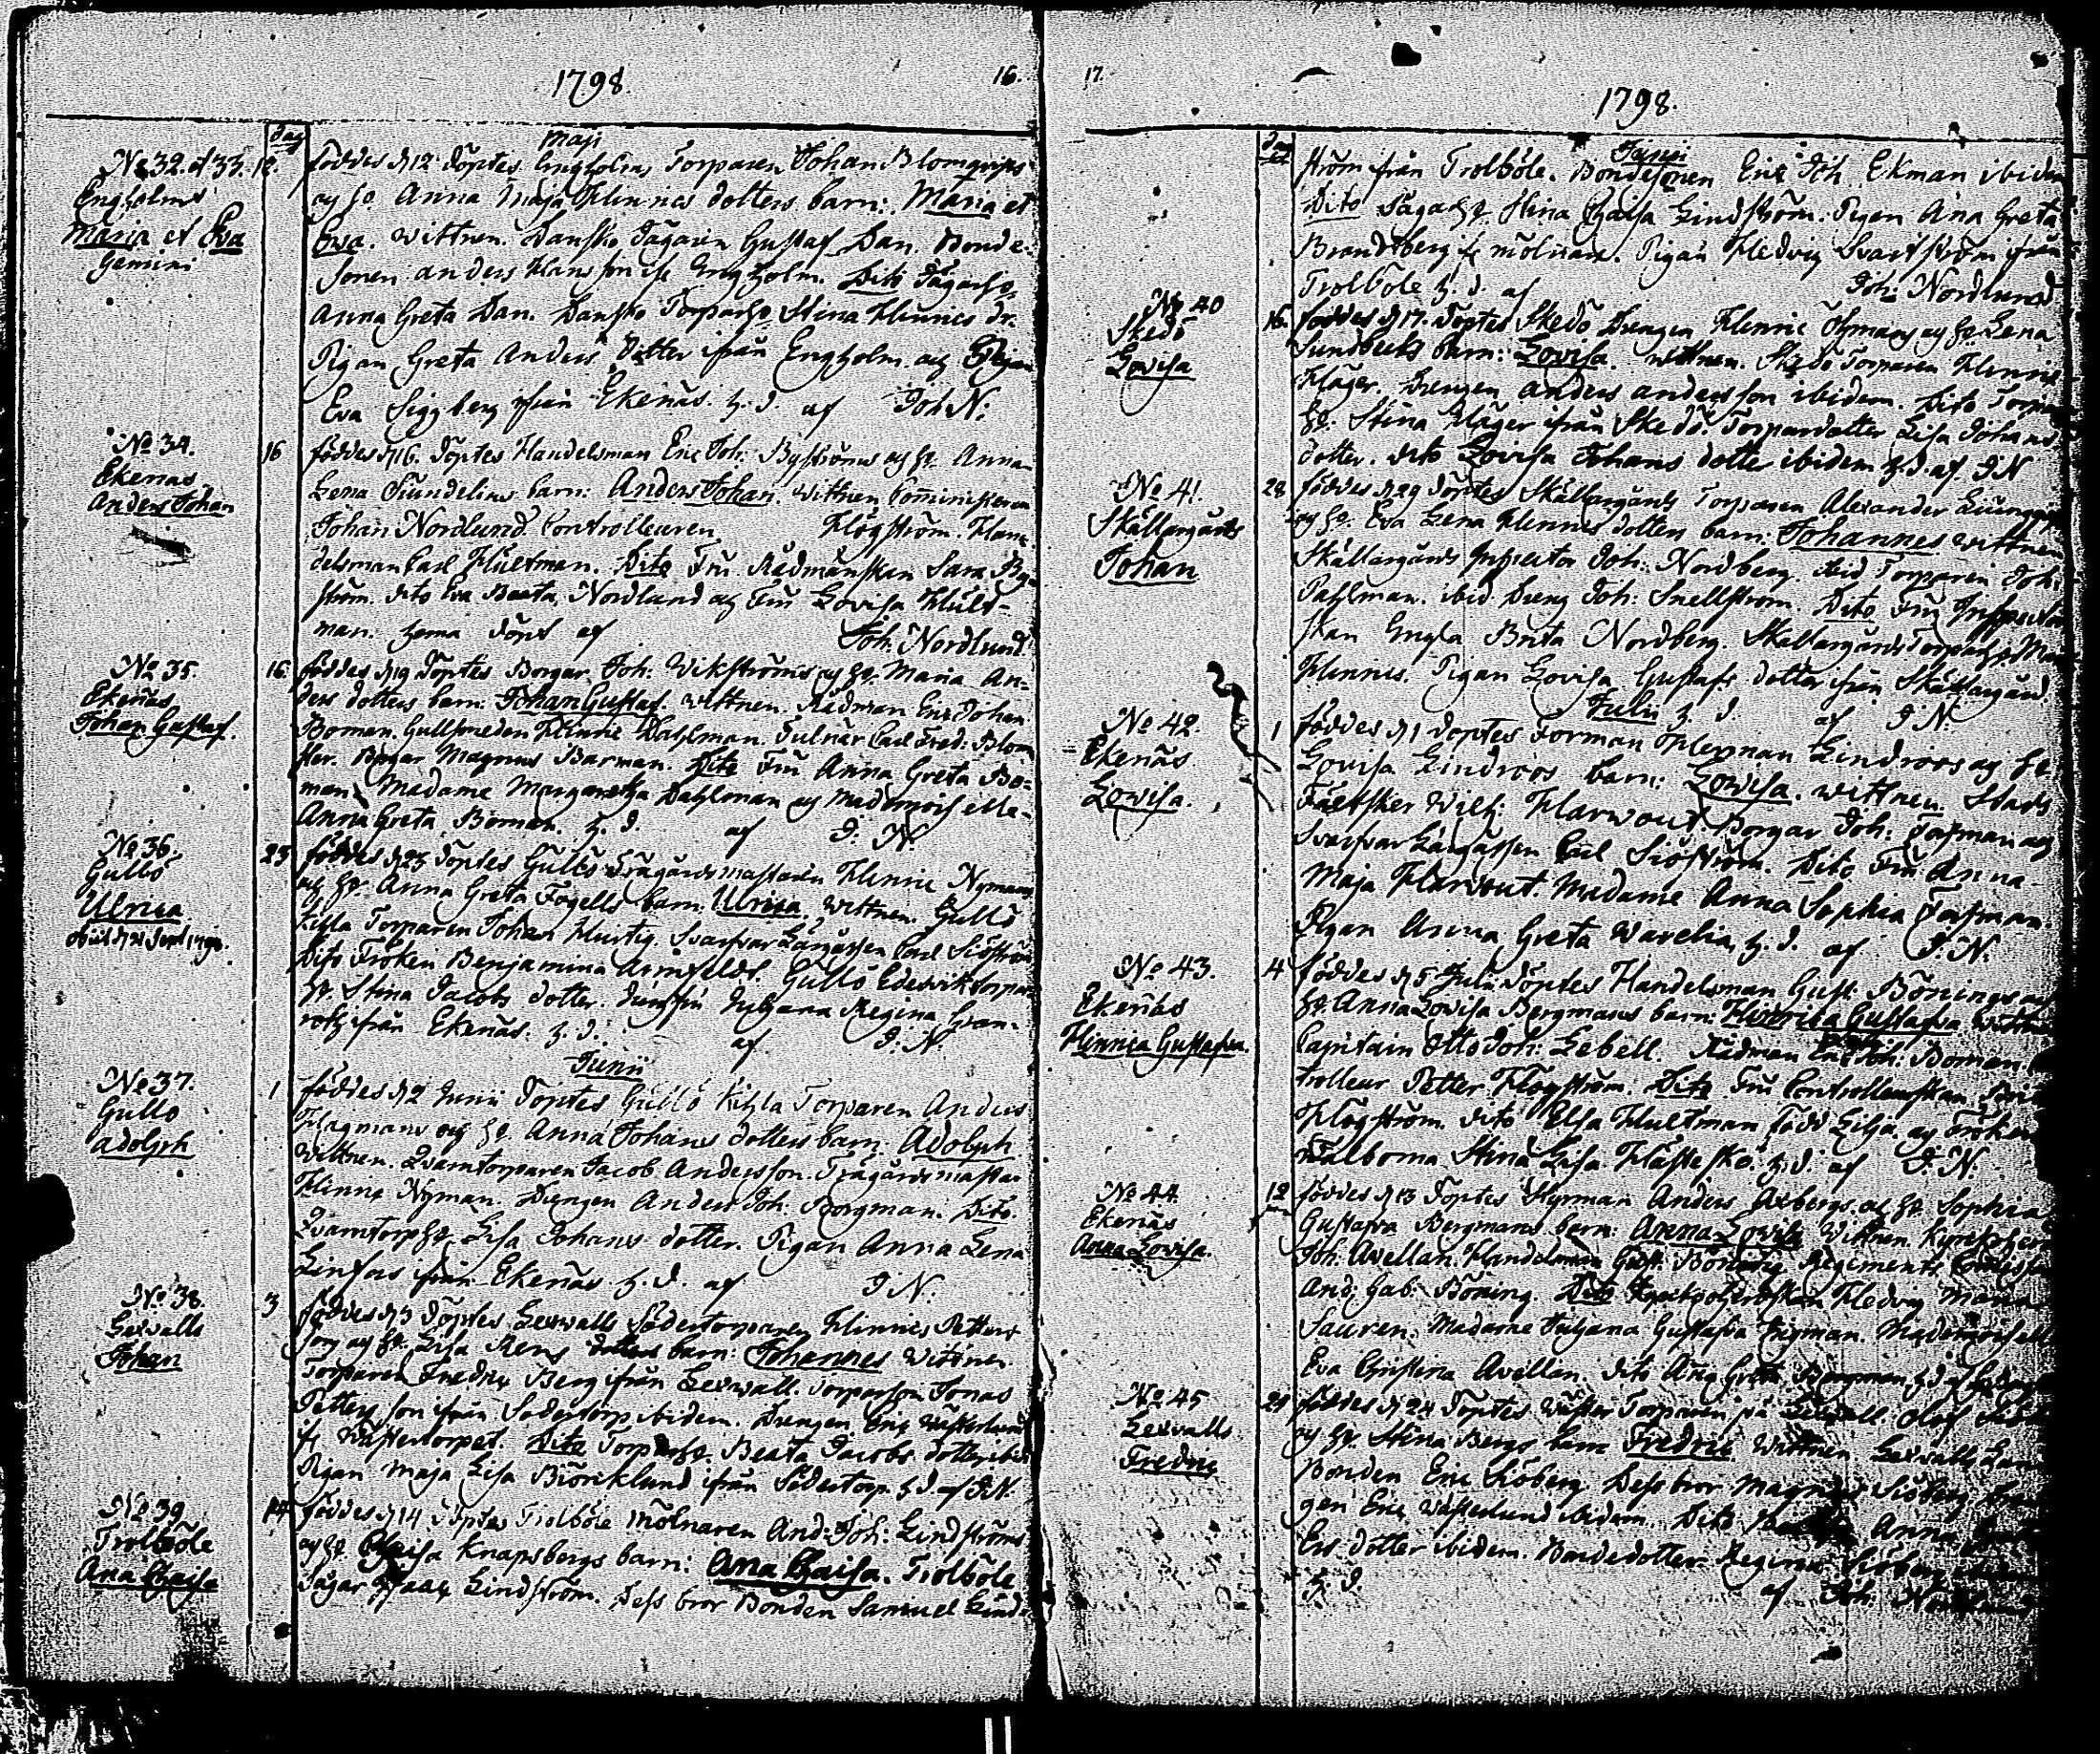 1798.
16.
dag
Maji
No 32. et 33.
Engholms
Maria et Eva
Gemini
12.
föddes d 12 döptes Engholms Torparen Johan Blomqvists
og h. Anna Maja Hinrics dotters barn: Maria et
Eva. wittnen. Dansko Jägaren Gustaf Dan. Bonde-
sonen anders Hansson ifr Engholm. Dito Jägareh.
Anna Greta Dan. Dansko Torpareh. Stina Hinrics dr.
Pigan Greta Anders dotter ifrån Engholm og Pigan
Eva Siggberg ifrån Ekenäs. h. d. af Joh. N:
No 34.
Ekenäs
Anders Johan
16
föddes d 16. döptes Handelsman Eric Joh: Byströms og h. Anna
Lena Sundelius barn: Anders Johan. wittnen Comministeren
Johan Nordlund. Controlleuren Högström. Han-
delsman Carl Hultman. Dito Fru Rådmanskan Sara By-
ström. dito Eva Beata Nordlund og Fru Lovisa Hult-
man. hema döpt af Joh: Nordlund
No 35.
Ekenäs
Johan Gustaf.
16.
föddes d 19 döptes Borgar Joh: Wikströms og h. Maria An-
ders dotters barn: Johan Gustaf. wittnen. Rådman Eric Johan
Boman. Gullsmeden Hinric Dahlman. Tulnär Carl Fred: Blom
ster. Borgar Magnus Barman. Dito Fru Anna Greta Bo-
man. Madame Margaretha Dahlman og Mademoiselle
Anna Greta Boman. h. d. af J. N.
No 36.
Gullö
Ulrica
obiit d 21 Sept 1798.
23
föddes d 25 döptes Gullö Trägårdsmästaren Hinric Nymans
og h. Anna Greta Fogells barn: Ulrica. wittnen. Gullö
Kihla Torparen Johan Hurtig. Svarfvar Gärgässen Carl Siöström
Dito Fröken Benjamina Armfeldt. Gullö Edesvik torpar
h. Stina Jacobs dotter. Jumfru Juliana Regina Gran-
roth ifrån Ekenäs. h. d. af J. N.
Junii
No 37.
Gullö
Adolph
1
föddes d 2 Junii döptes Gullö Kihla Torparen Anders
Hagmans og h. Anna Johans dotters barn. Adolph
wittnen. Qvarntorparen Jacob Andersson. Trägårdsmästar
Hinric Nyman. Drengen Anders Joh: Borgman. Dito.
Qvarntorph. Lisa Johans dotter. Pigan Anna Lena
Linfors ifrån Ekenäs. h. d. af J. N.
No 38.
Lexvalls
Johan
3
föddes d 3 döptes Lexvalls Södertorparen Hinrics Petters
son og h. Lisa Rens dotters barn: Johannes witnen.
Torparen Fredric Berg ifrån Lexvall. Torparson Jonas
Petters son ifrån Södertorp ibidem. Drengen Eric Wästerlund
fr. Wästertorpet. Dito Torpareh. Beata Jacobs dotter ibid
Pigan Maja Lisa Biörcklund ifrån Södertorp. h. d. af J. N.
No 39.
Trolböle
Ana Chaisa
14
föddes d 14 döptes Trolböle Mölnaren And: Joh: Lindströms
og h. Chaisa Knapsbergs barn: Ana Chaisa. Trolböle
Sågar Isaac Lindström. Dess bror Bonden Samuel Lind-
17.
1798.
dag
Junii
ström från Trolböle. Bondesonen Eric Joh. Ekman ibidem
Dito Sågareh. Stina Chaisa Lindström. Pigan Ana Greta
Brandtberg fr mölnare. Pigan Hedvig Svartström ifrån
Trolböle h. d. af Joh: Nordlund
No 40
Skedö
Lovisa
16.
föddes d 17. döptes Skedö Drengen Hinric Öhmans og h. Lena
Sundbecks barn: Lovisa. wittnen. Skedö Torparen Hinric
Häger. Drengen anders andersson ibidem. Dito Torpar
h. Stina Häger ifrån Skedö. Torpardotter Lisa Johans
dotter. dito Lovisa Johans dotter ibidem. h. d. af. J N
No 41.
Skållargårds
Johan
28
föddes d 29 döptes Skållargårds Torparen Alexander
og h. Eva Lena Hinrics dotters barn: Johannes wittnen
Skållargårds Inspector Joh: Nordberg. ibid Torparen Joh:
Pahlman. ibid Dreng Joh: Snellström. Dito Fru Inspector
skan Engla Brita Nordberg. Skållargårds Torpareh.
Hinrics. Pigan Lovisa Gustafs dotter ifrån Skållargård.
Julii h. d. af J. N.
No 42.
Ekenäs
Lovisa.
1
föddes d 1 döptes Formans Herman Lindroos og h.
Lovisa Lindroos barn: Lovisa. wittnen. Stads
Fältsker Wilh: Harwout. Borgar Joh: Forsman og
Svarfvar Gärgässen Carl Siöström. Dito Fru Anna
Maja Harwout. Madame Anna Sophia Forsman.
Pigan Anna Greta Warelia. h. d. af J. N.
No 43.
Ekenäs
Hinrica Gustafva.
4
föddes d 5 Julii döptes Handelsman Gust: Bönings og
h. Anna Lovisa Bergmans barn: Hinrica Gustafva wittnen
Capitain Otto Joh: Lebell. Rådman Eric Joh: Boman.
trolleur Petter Högström. Dito Fru Controlleurskan
Högström. dito Elsa Hultman född Lilja og Fröken
Wälborna Stina Lisa Hästesko. h. d. af J. N.
No 44.
Ekenäs
Anna Lovisa.
12
föddes d 13 döptes Styrman Anders Axbergs og h. Sophia
Gustafva Bergmans barn: Anna Lovisa wittnen.
Joh: Avellan. Handelsman Gust: Böning. Regements
And: Gab: Böning. Dito Hedvig Maria
Sauren. Madame Juliana Gustafva Mademoisell
Eva Christina Avellan. dito Ana Greta Bergman h d af
No 45
Lexvalls
Fredric
21
föddes d 24 döptes Wäster Torparen på Lexvall Olof
og h. Stina Bergs barn Fredric wittnen Lexvalls
Bonden Eric Siöberg. Dess bror Magnus Siöberg.
gen Eric Wästerlund ibidem. Dito Anna
Ers dotter ibidem. Bondedotter Regina Siöberg
h. d. af Joh: